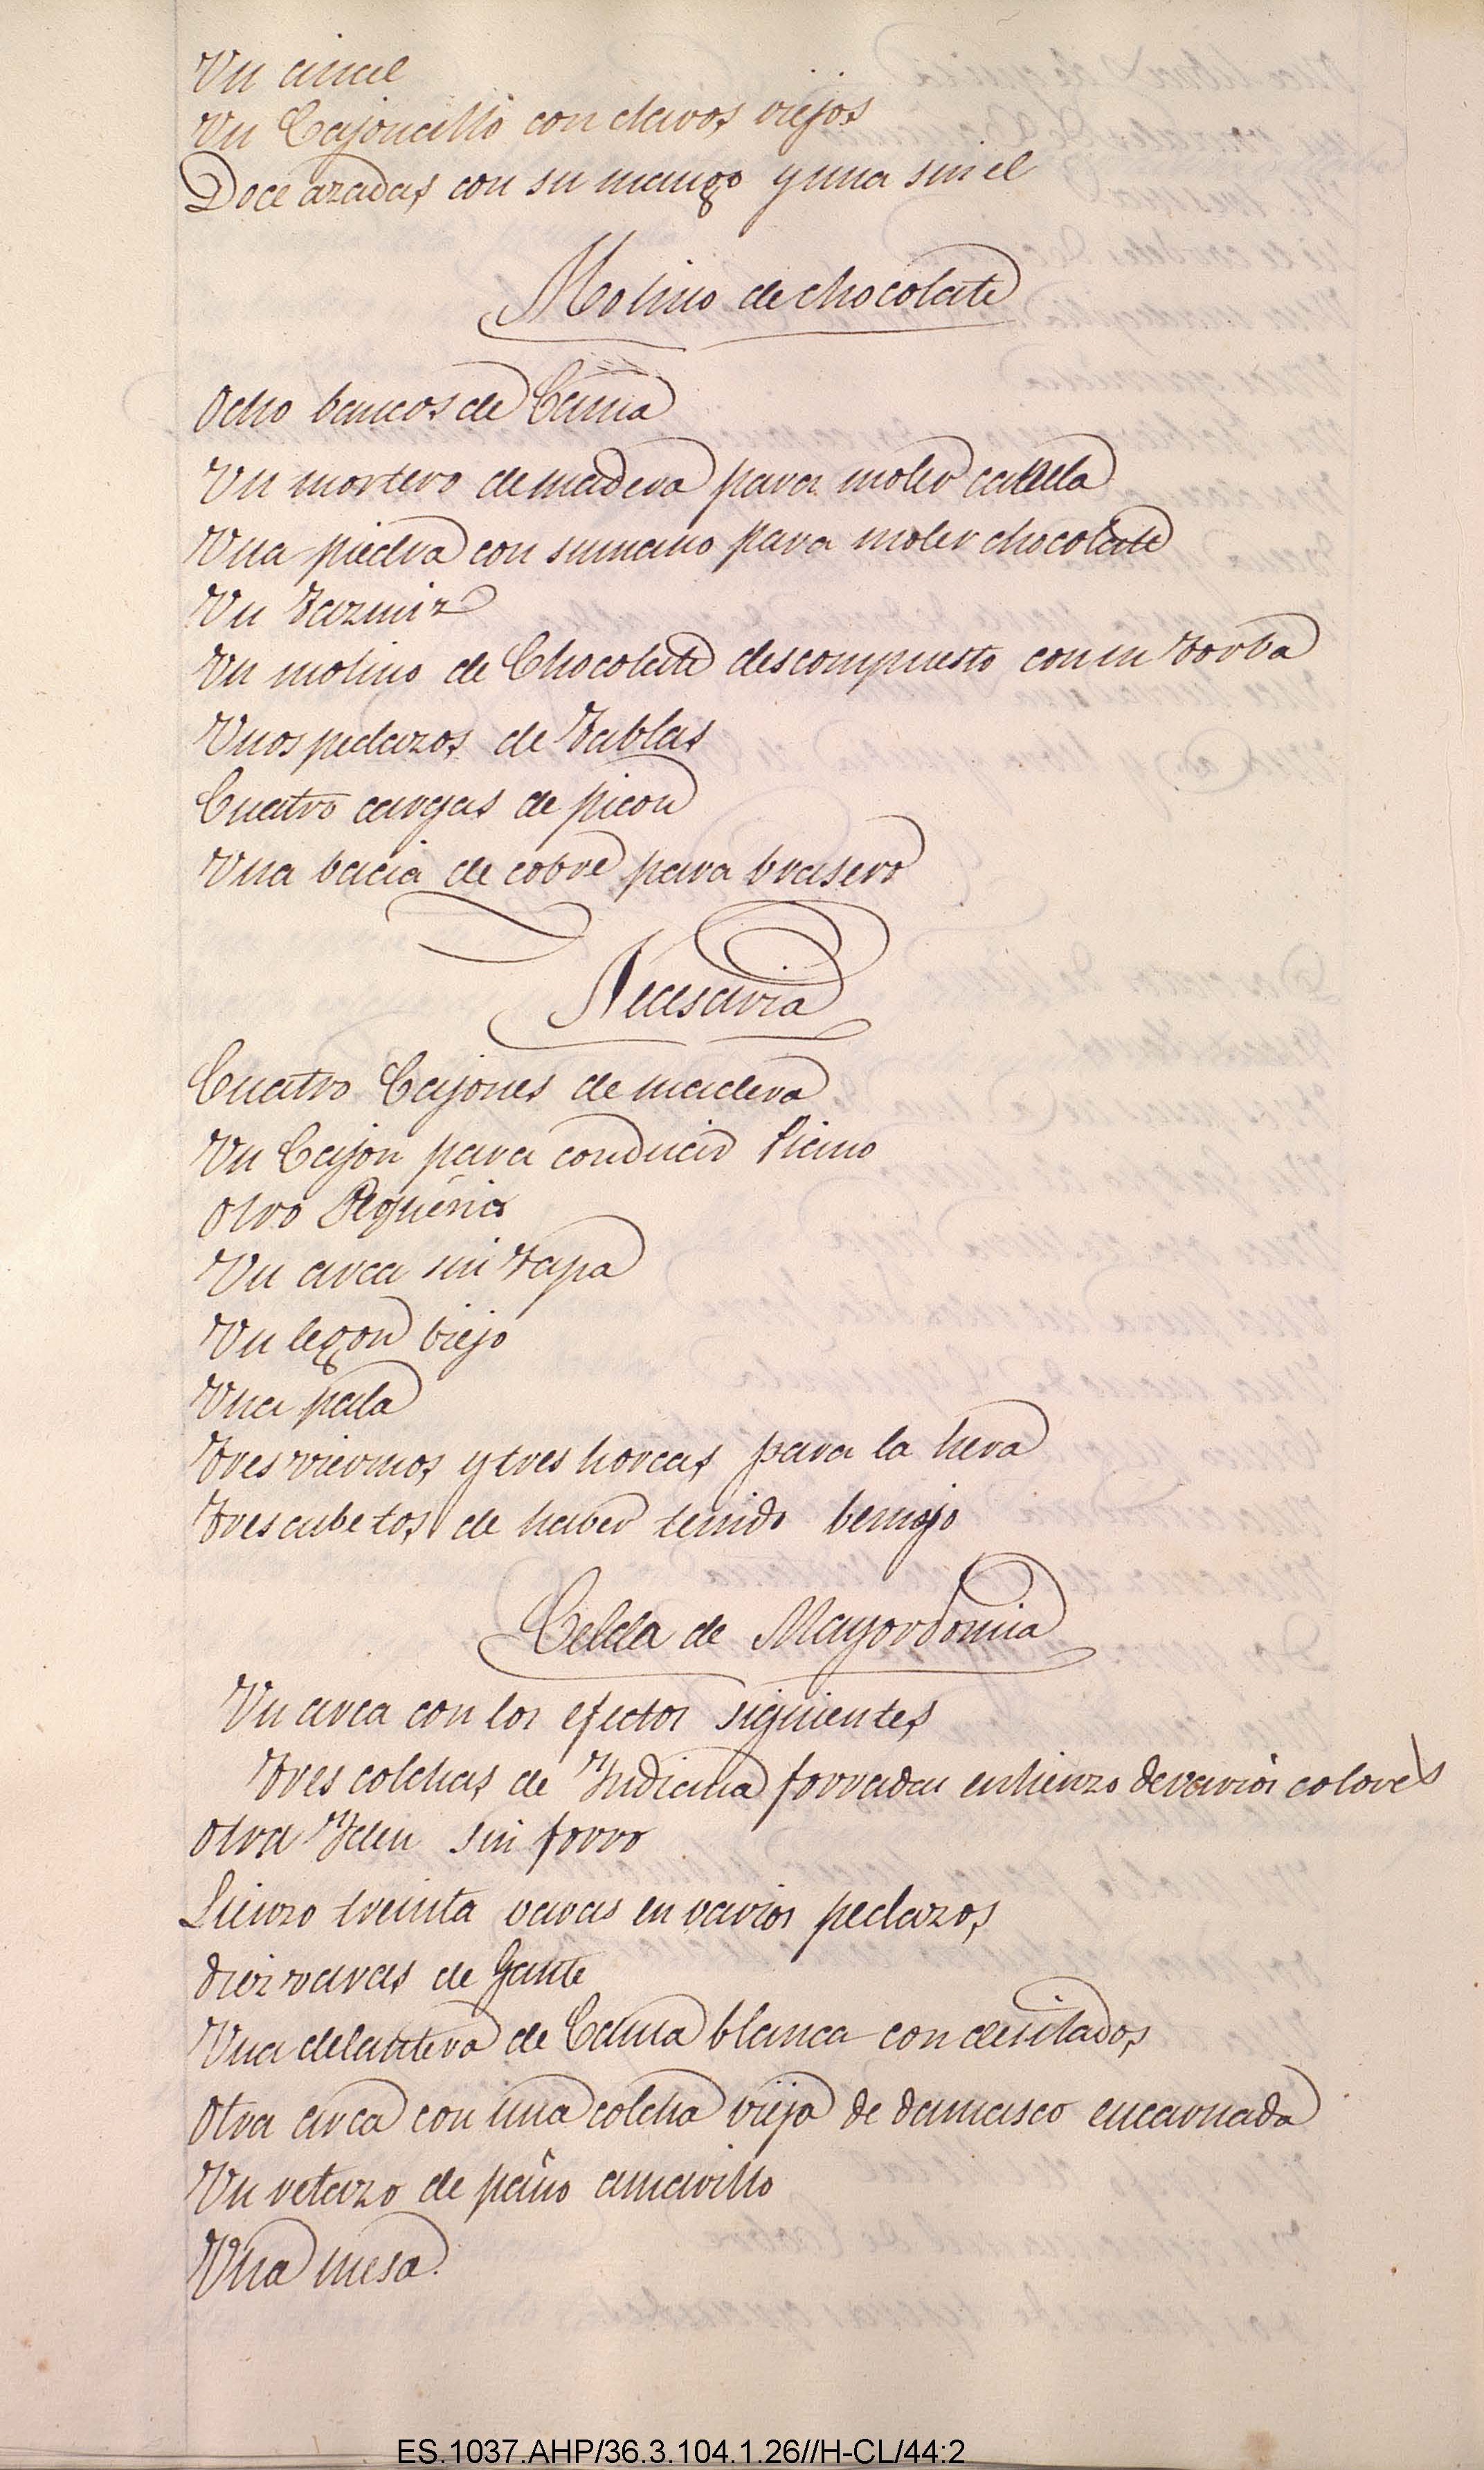 Un cincel
Un Cajoncillo con clavos viejos
Doce azadas con su mango y una sin el
Molino de chocolate
Ocho bancos de Cama
Un mortero de madera para moler canela
Una piedra con su mano para moler chocolate
Un Tazmiz
Un molino de Chocolate descompuesto con su Torba
Unos pedazos de Tablas
Cuatro cargas de picon
Una bacia de cobre para brasero
Necesaria
Cuatro Cajones de madera
Un Cajon para conducir
Otro Pequeño
Un arca sin Tapa
Un legon biejo
Una pala
Tres viernos y tres horcas para la hera
Tres cubetos de haber tenido
Celda de Mayordomia
Un arca con los efectos siguientes
Tres colchas de Indiana forradas en lienzo de varios colores
Otra Idem sin forro
Lienzo treinta varas en varios pedazos
diez varas de Gante
Una delantera de Cama blanca con desilados
Otra arca con una colcha vieja de damasco encarnada
Un retazo de paño amarillo
Una mesa.
ES.1037.AHP/36.3.104.1.26//H-CL/44:2